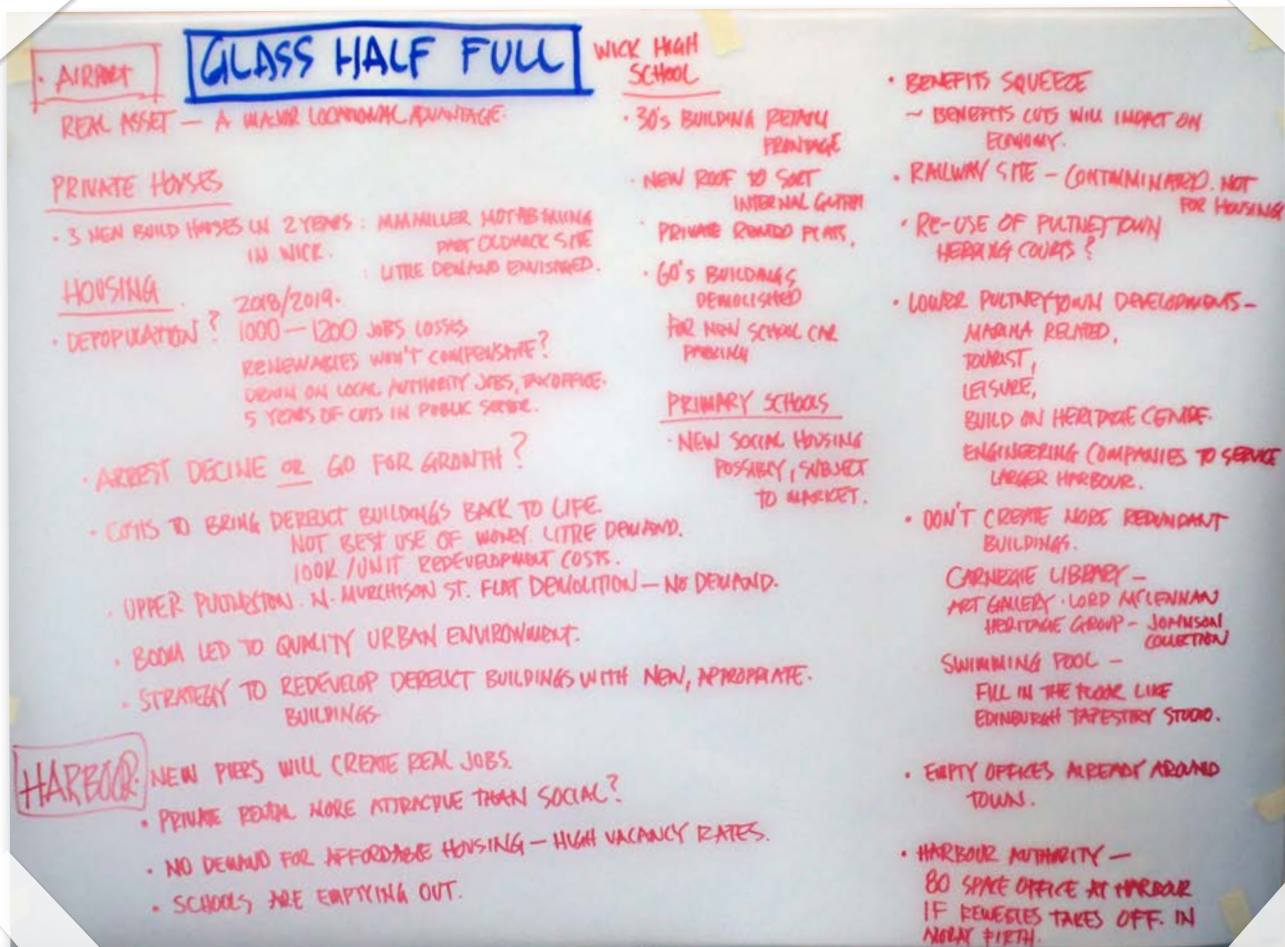 GLASS HALF FULL
· AIRPORT
REAL ASSET — A MAJOR LOCATIONAL ADVANTAGE.
PRIVATE HOUSES
· 3 NEW BUILD HOUSES IN 2 YEARS :
IN WICK.
SITE
: LITRE DEMAND ENVISAGED.
HOUSING
· DEPOPULATION?
2018/2019.
1000 — 1200 JOBS LOSSES
RENEWABLES WON'T COMPENSATE?
DRAIN ON LOCAL AUTHORITY JOBS, TAX OFFICE.
5 YEARS OF CUTS IN PUBLIC SECTOR.
· ARREST DECINE OR GO FOR GROWTH?
· COSTS TO BRING DERELICT BUILDINGS BACK TO LIFE.
NOT BEST USE OF MONEY. LITRE DEMAND.
100K / UNIT REDEVELOPMENT COSTS.
· UPPER N. MURCHISON ST. FLAT DEMOLITION — NO DEMAND.
· BOOM LED TO QUALITY URBAN ENVIRONMENT.
· STRATEGY TO REDEVELOP DERELICT BUILDINGS WITH NEW, APPROPRIATE.
BUILDINGS.
HARBOUR
· NEW PIERS WILL CREATE REAL JOBS.
· PRIVATE RENTAL MORE ATTRACTIVE THAN SOCIAL?
· NO DEMAND FOR AFFORDABLE HOUSING — HIGH VACANCY RATES.
· SCHOOLS ARE EMPTYING OUT.
WICK HIGH
SCHOOL
· 30's BUILDING RETAIN
FRONTAGE
· NEW ROOF TO SORT
INTERNAL
· PRIVATE FLATS.
· 60's BUILDINGS
DEMOLISHED
FOR NEW SCHOOL CAR
PARKING
PRIMARY SCHOOLS
· NEW SOCIAL HOUSING
POSSIBLY, SUBJECT
TO MARKET.
· BENEFITS SQUEEZE
~ BENEFITS CUTS WILL IMPACT ON
ECONOMY.
· RAILWAY SITE — CONTAMINATED. NOT
FOR HOUSING
· RE-USE OF PULTNEYTOWN
HERRING COURTS?
· LOWER PULTNEYTOWN DEVELOPMENTS —
MARINA RELATED,
TOURIST,
LEISURE,
BUILD ON HERITAGE CENTRE.
ENGINEERING COMPANIES TO SERVICE
LARGER HARBOUR.
· DON'T CREATE MORE REDUNDANT
BUILDINGS.
CARNEGIE LIBRARY —
ART GALLERY · LORD MCLENNAN
HERITAGE GROUP — JOHNSON
COLLECTION
SWIMMING POOL —
FILL IN THE FLOOR LIKE
EDINBURGH TAPESTRY STUDIO.
· EMPTY OFFICES ALREADY AROUND
TOWN.
· HARBOUR AUTHORITY —
80 SPACE OFFICE AT HARBOUR
IF TAKES OFF. IN
MORAY FIRTH.